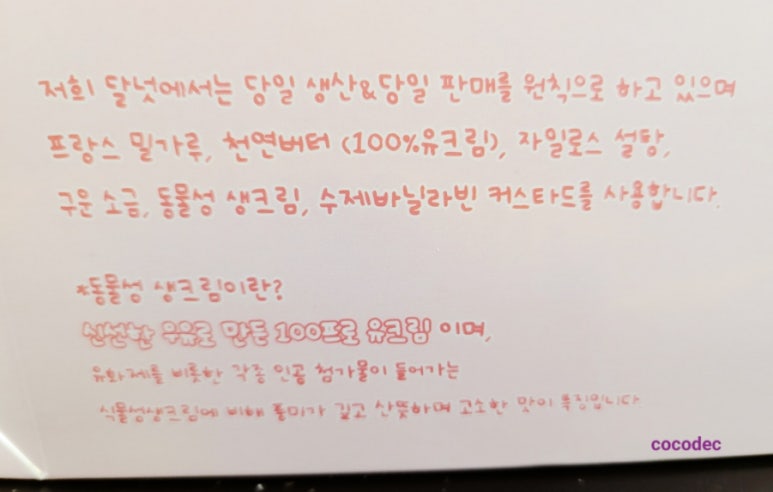 저희 달넛에서는 당일 생산&당일 판매를 원칙으로 하고 있으며
프랑스 밀가루, 천연버터 (100%유크림), 자일로스 설탕,
구운 소금, 동물성 생크림, 수제바닐라빈 커스타드를 사용합니다.
*동물성 생크림이란?
신선한 우유로 만든 100프로 유크림 이며,
유화제를 비롯한 각종 인공 첨가물이 들어가는
식물성생크림에 비해 풍미가 깊고 산뜻하며 고소한 맛이 특징입니다
cocodec